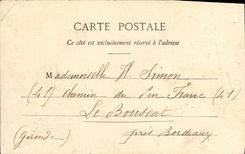 CARTE POSTALE
Ce côté est exclusivement réservé à l'adresse
Mademoiselle H. Simon
(41) Chemin du Pin Franc (41)
Le Bouscat
(Gironde) près Bordeaux